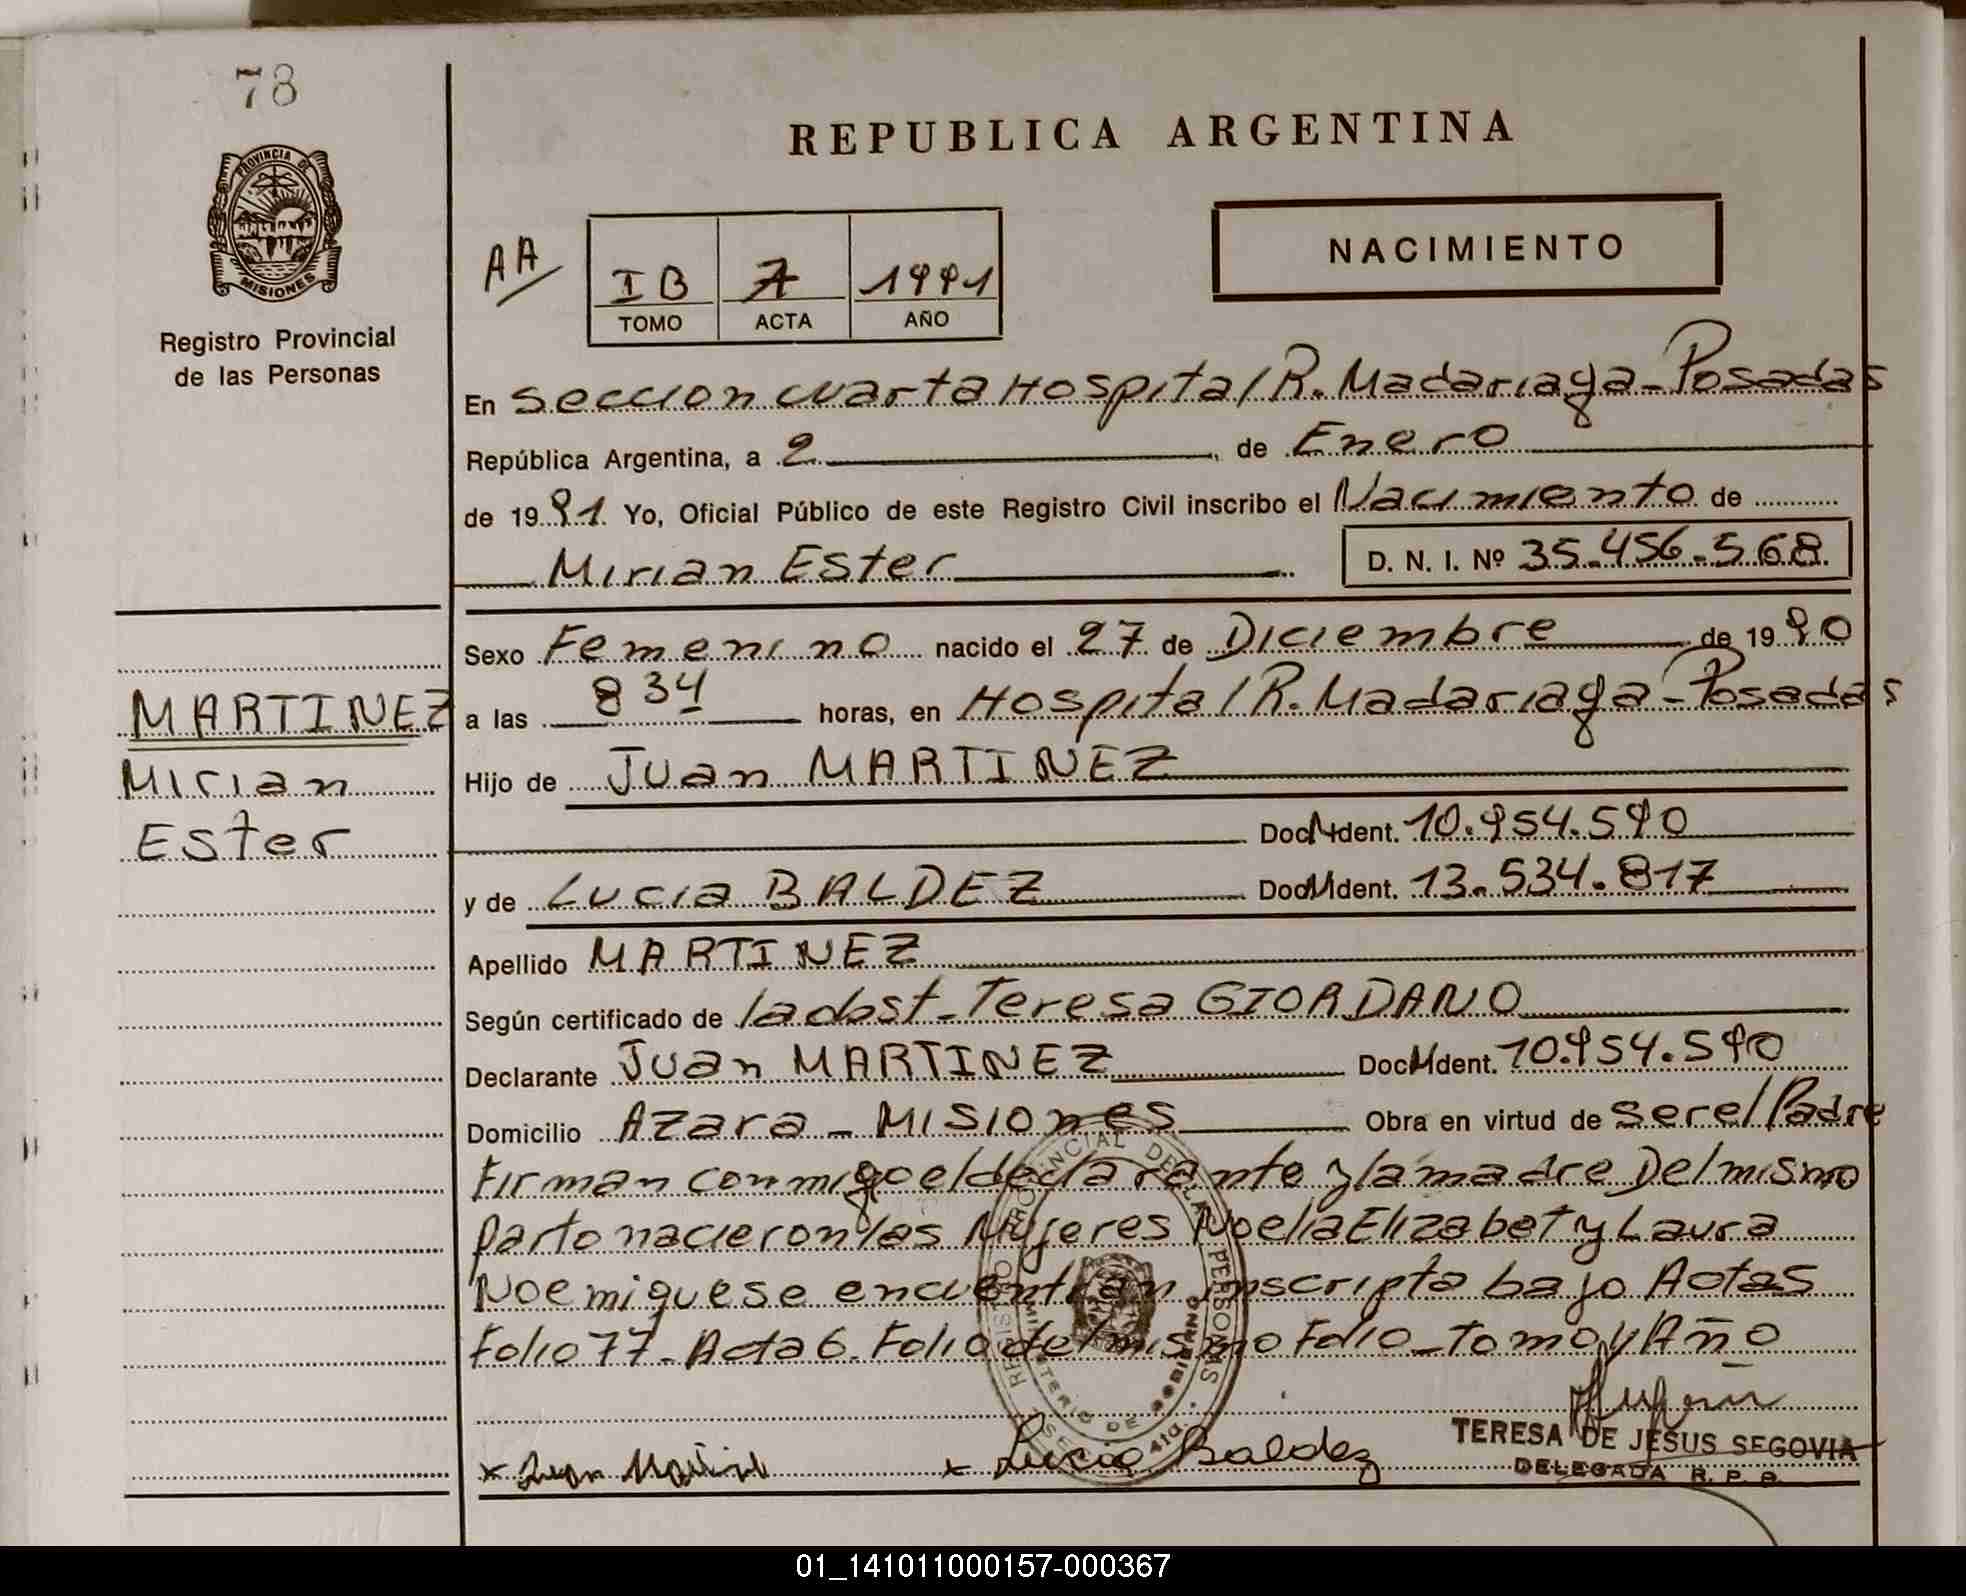 78
PROVINCIA DE
MISIONES
Registro Provincial
de las Personas
REPUBLICA ARGENTINA
AA
IB 7 1991
TOMO ACTA AÑO
NACIMIENTO
En Seccion cuarta Hospital R. Madariaga - Posadas
República Argentina, a 2, de Enero
de 1991 Yo, Oficial Público de este Registro Civil inscribo el Nacimiento de
Mirian Ester D. N. I. Nº 35.456.568
Sexo Femenino nacido el 27 de Diciembre de 1990
MARTINEZ
a las 8 34 horas, en Hospital R. Madariaga - Posadas
Mirian
Hijo de Juan MARTINEZ
Ester
Doc. Ident. 10.954.590
y de Lucia BALDEZ Doc. Ident. 13.534.817
Apellido MARTINEZ
Según certificado de la obst. Teresa GIORDANO
Declarante Juan MARTINEZ Doc. Ident. 10.954.590
Domicilio Azara - MISIONES Obra en virtud de ser el Padre
Firman conmigo el declarante y la madre Del mismo
parto nacieron las Mujeres Noelia Elizabet y Laura
Noemi que se encuentran inscripta bajo Actas
Folio 77 - Acta 6. Folio del mismo Folio - Tomo y Año
REGISTRO PROVINCIAL DE LAS PERSONAS
MINISTERIO DE GOBIERNO
x Juan Martinez x Lucia Baldez
TERESA DE JESUS SEGOVIA
DELEGADA R. P. P.
01_141011000157-000367